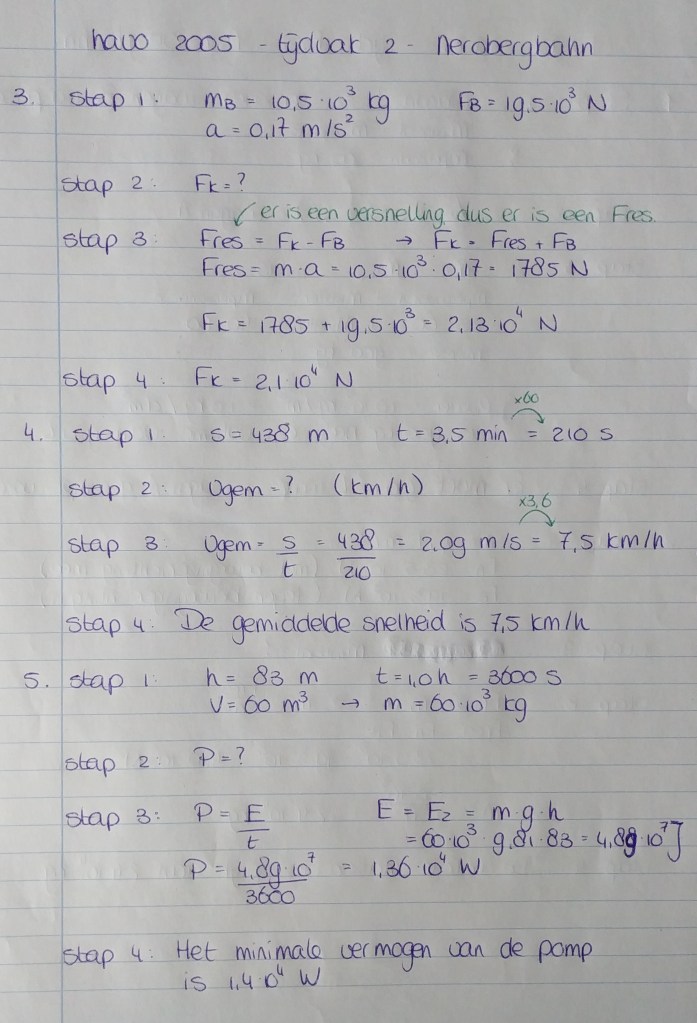 havo 2005 - tijdvak 2 - Nerobergbahn
3. stap 1: mB = 10,5·10³ kg FB = 19,5·10³ N
a = 0,17 m/s²
stap 2: Fk = ?
↙ er is een versnelling dus er is een Fres.
stap 3: Fres = Fk - FB → Fk = Fres + FB
Fres = m·a = 10,5·10³·0,17 = 1785 N
Fk = 1785 + 19,5·10³ = 2,13·10⁴ N
stap 4: Fk = 2,1·10⁴ N
×60
4. stap 1: s = 438 m t = 3,5 min = 210 s
stap 2: vgem = ? (km/h)
×3,6
stap 3: vgem = s/t = 438/210 = 2,09 m/s = 7,5 km/h
stap 4: De gemiddelde snelheid is 7,5 km/h
5. stap 1: h = 83 m t = 1,0 h = 3600 s
V = 60 m³ → m = 60·10³ kg
stap 2: P = ?
stap 3: P = E/t E = Ez = m·g·h
= 60·10³·9,81·83 = 4,89·10⁷ J
P = 4,89·10⁷/3600 = 1,36·10⁴ W
stap 4: Het minimale vermogen van de pomp
is 1,4·10⁴ W